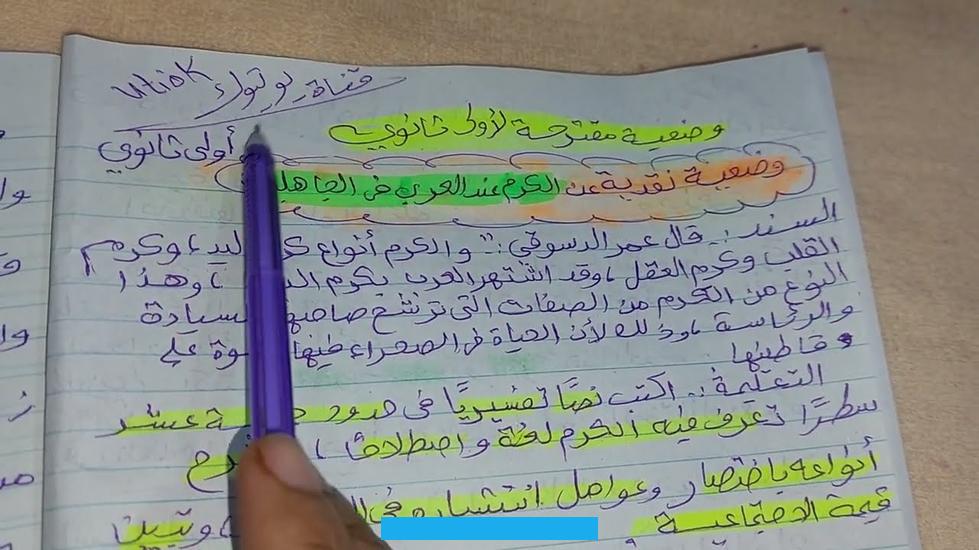 قناة يوتيوك utiok
وضعية مقترحة لأولى ثانوي
أولى ثانوي
وضعية نقدية عن الكرم عند العرب في الجاهلي
السند: قال عمر الدسوقي: "والكرم أنواع كرم اليد، وكرم
القلب وكرم العقل، وقد اشتهر العرب بكرم، وهذا
النوع من الكرم من الصفات التي ترشح صاحبها للسيادة
والرئاسة، وذلك لأن الحياة في الصحراء فيها قسوة على
قاطنيها
التعليمة: اكتب نصًا تفسيريًا في حدود خمسة عشر
سطرًا تعرف فيه الكرم لغة واصطلاحًا،
أنواعه باختصار وعوامل انتشاره في، وتبين
قيمة الاجتماعية